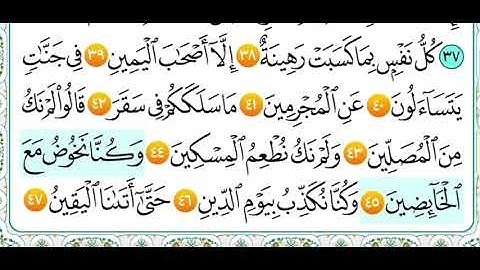 ٣٧ كُلُّ نَفْسٍۭ بِمَا كَسَبَتْ رَهِينَةٌ ٣٨ إِلَّآ أَصْحَٰبَ ٱلْيَمِينِ ٣٩ فِى جَنَّٰتٍ
يَتَسَآءَلُونَ ٤٠ عَنِ ٱلْمُجْرِمِينَ ٤١ مَا سَلَكَكُمْ فِى سَقَرَ ٤٢ قَالُوا۟ لَمْ نَكُ
مِنَ ٱلْمُصَلِّينَ ٤٣ وَلَمْ نَكُ نُطْعِمُ ٱلْمِسْكِينَ ٤٤ وَكُنَّا نَخُوضُ مَعَ
ٱلْخَآئِضِينَ ٤٥ وَكُنَّا نُكَذِّبُ بِيَوْمِ ٱلدِّينِ ٤٦ حَتَّىٰٓ أَتَىٰنَا ٱلْيَقِينُ ٤٧